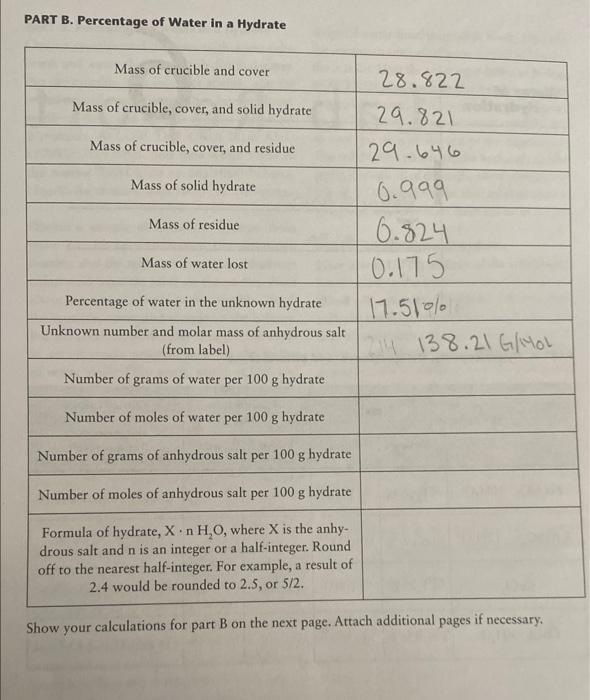 PART B. Percentage of Water in a Hydrate
Mass of crucible and cover 28.822
Mass of crucible, cover, and solid hydrate 29.821
Mass of crucible, cover, and residue 29.646
Mass of solid hydrate 0.999
Mass of residue 0.824
Mass of water lost 0.175
Percentage of water in the unknown hydrate 17.51%
Unknown number and molar mass of anhydrous salt
(from label) 138.21 G/MOL
Number of grams of water per 100 g hydrate
Number of moles of water per 100 g hydrate
Number of grams of anhydrous salt per 100 g hydrate
Number of moles of anhydrous salt per 100 g hydrate
Formula of hydrate, X · n H₂O, where X is the anhy-
drous salt and n is an integer or a half-integer. Round
off to the nearest half-integer. For example, a result of
2.4 would be rounded to 2.5, or 5/2.
Show your calculations for part B on the next page. Attach additional pages if necessary.